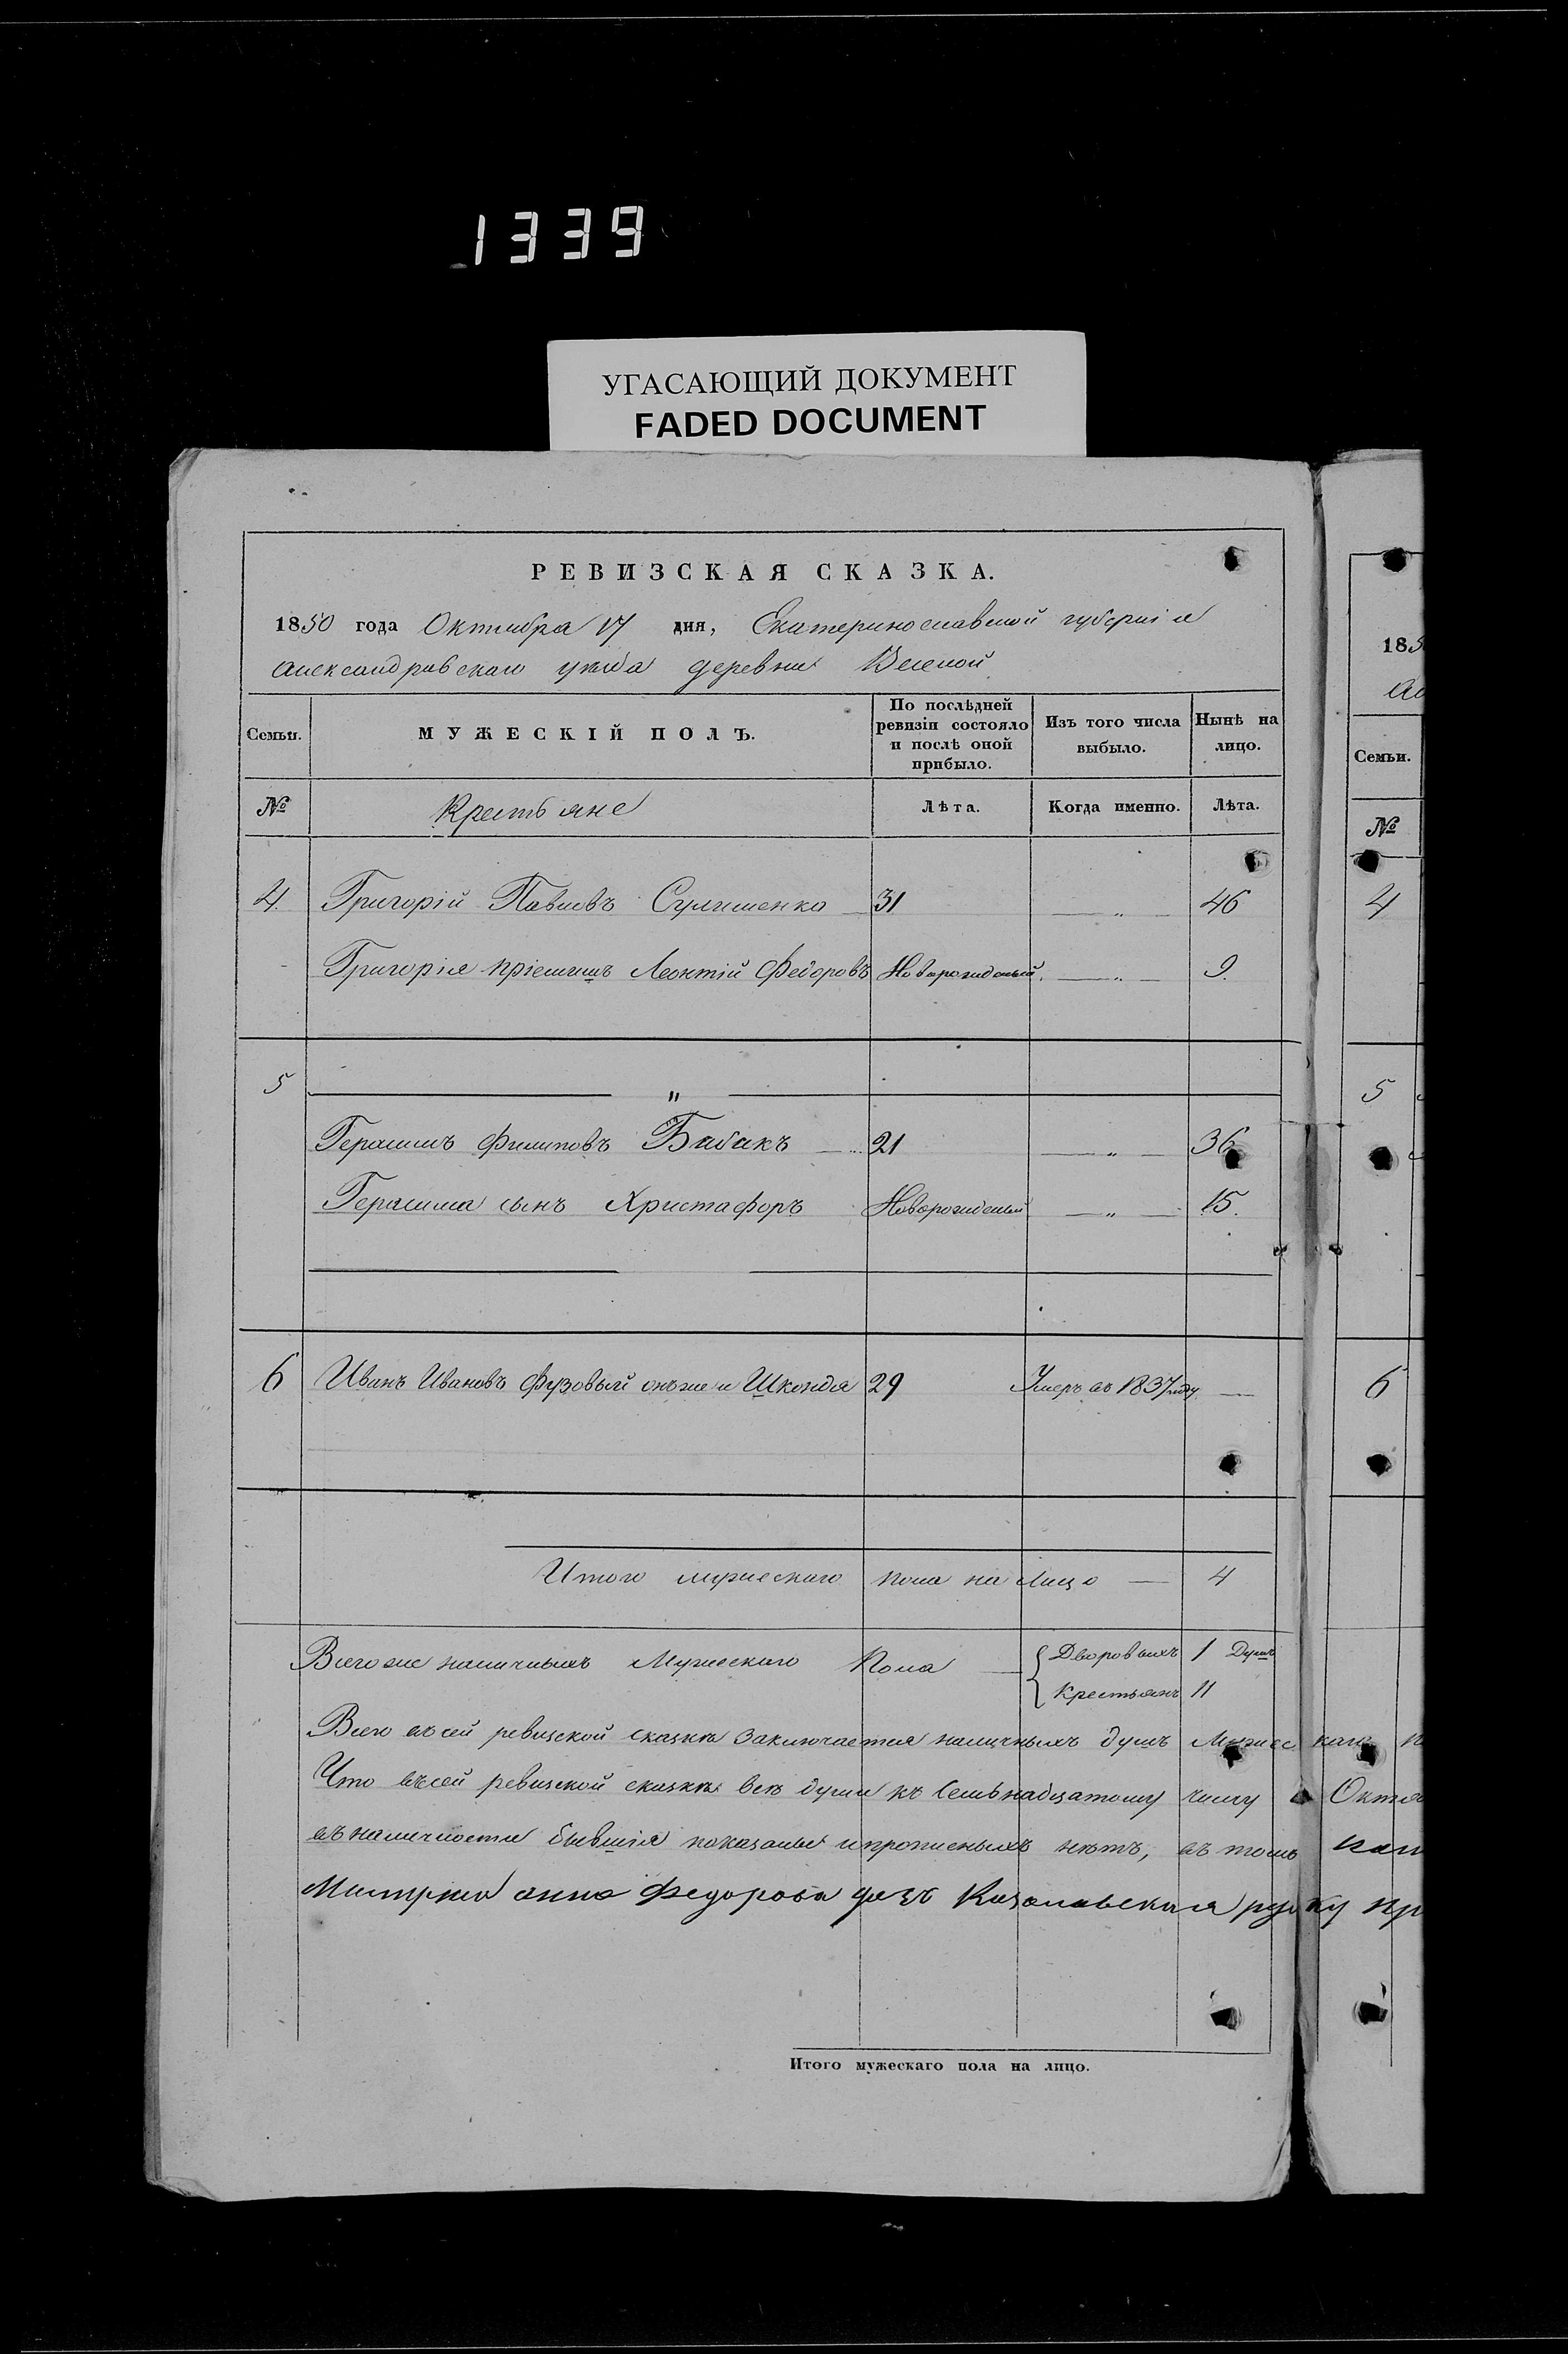 1339
УГАСАЮЩИЙ ДОКУМЕНТ
FADED DOCUMENT
РЕВИЗСКАЯ СКАЗКА.
1850 года Октября 17 дня, Екатеринославской губернiи
Александровскаго уѣзда деревни Веселой
Семьи. МУЖЕСКІЙ ПОЛЪ. По послѣдней ревизіи состояло и послѣ оной прибыло. Изъ того числа выбыло. Нынѣ на лицо.
№ Крестьяне Лѣта. Когда именно. Лѣта.
4. Григорій Павловъ 31 — „ — 46
Григорія пріемышъ Леонтій Федоровъ Новорожденый. — „ — 9.
5 „
Герасимъ Филиповъ Бабакъ 21 — „ — 36
Герасима сынъ Христафоръ Новорожденый — „ — 15.
6 Иванъ Ивановъ Фузовый онъ же и Шкондя 29 Умеръ въ 1837 году —
Итого мужескаго пола на лицо — 4
Всего же наличныхъ Мужескаго Пола — { Дворовыхъ 1 Душъ
Крестьянъ 11
Всего въ сей ревизской сказкѣ заключается наличныхъ душъ Мужескаго
Что въ сей ревизской сказкѣ всѣ души къ Семьнадцатому числу
въ наличности бывшія показаны и прописныхъ нѣтъ, въ томъ
Федорова руку
Итого мужескаго пола на лицо.
185
Семьи.
№
4
5
6